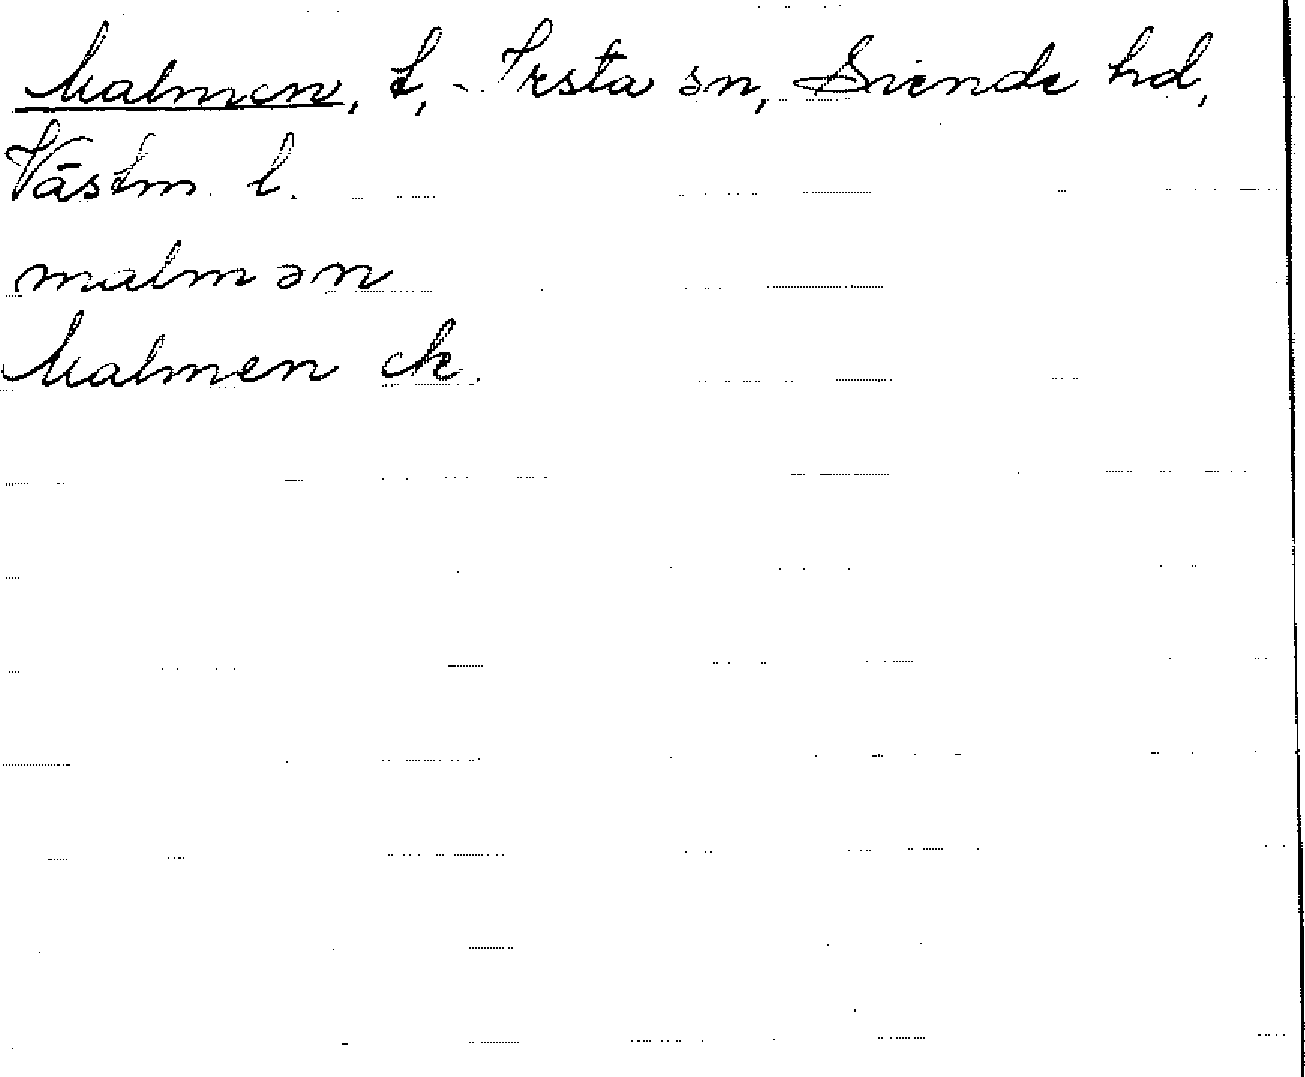 Malmen, t, Irsta sn, Siende hd,
Västm. l.
malmən
Malmen ek.